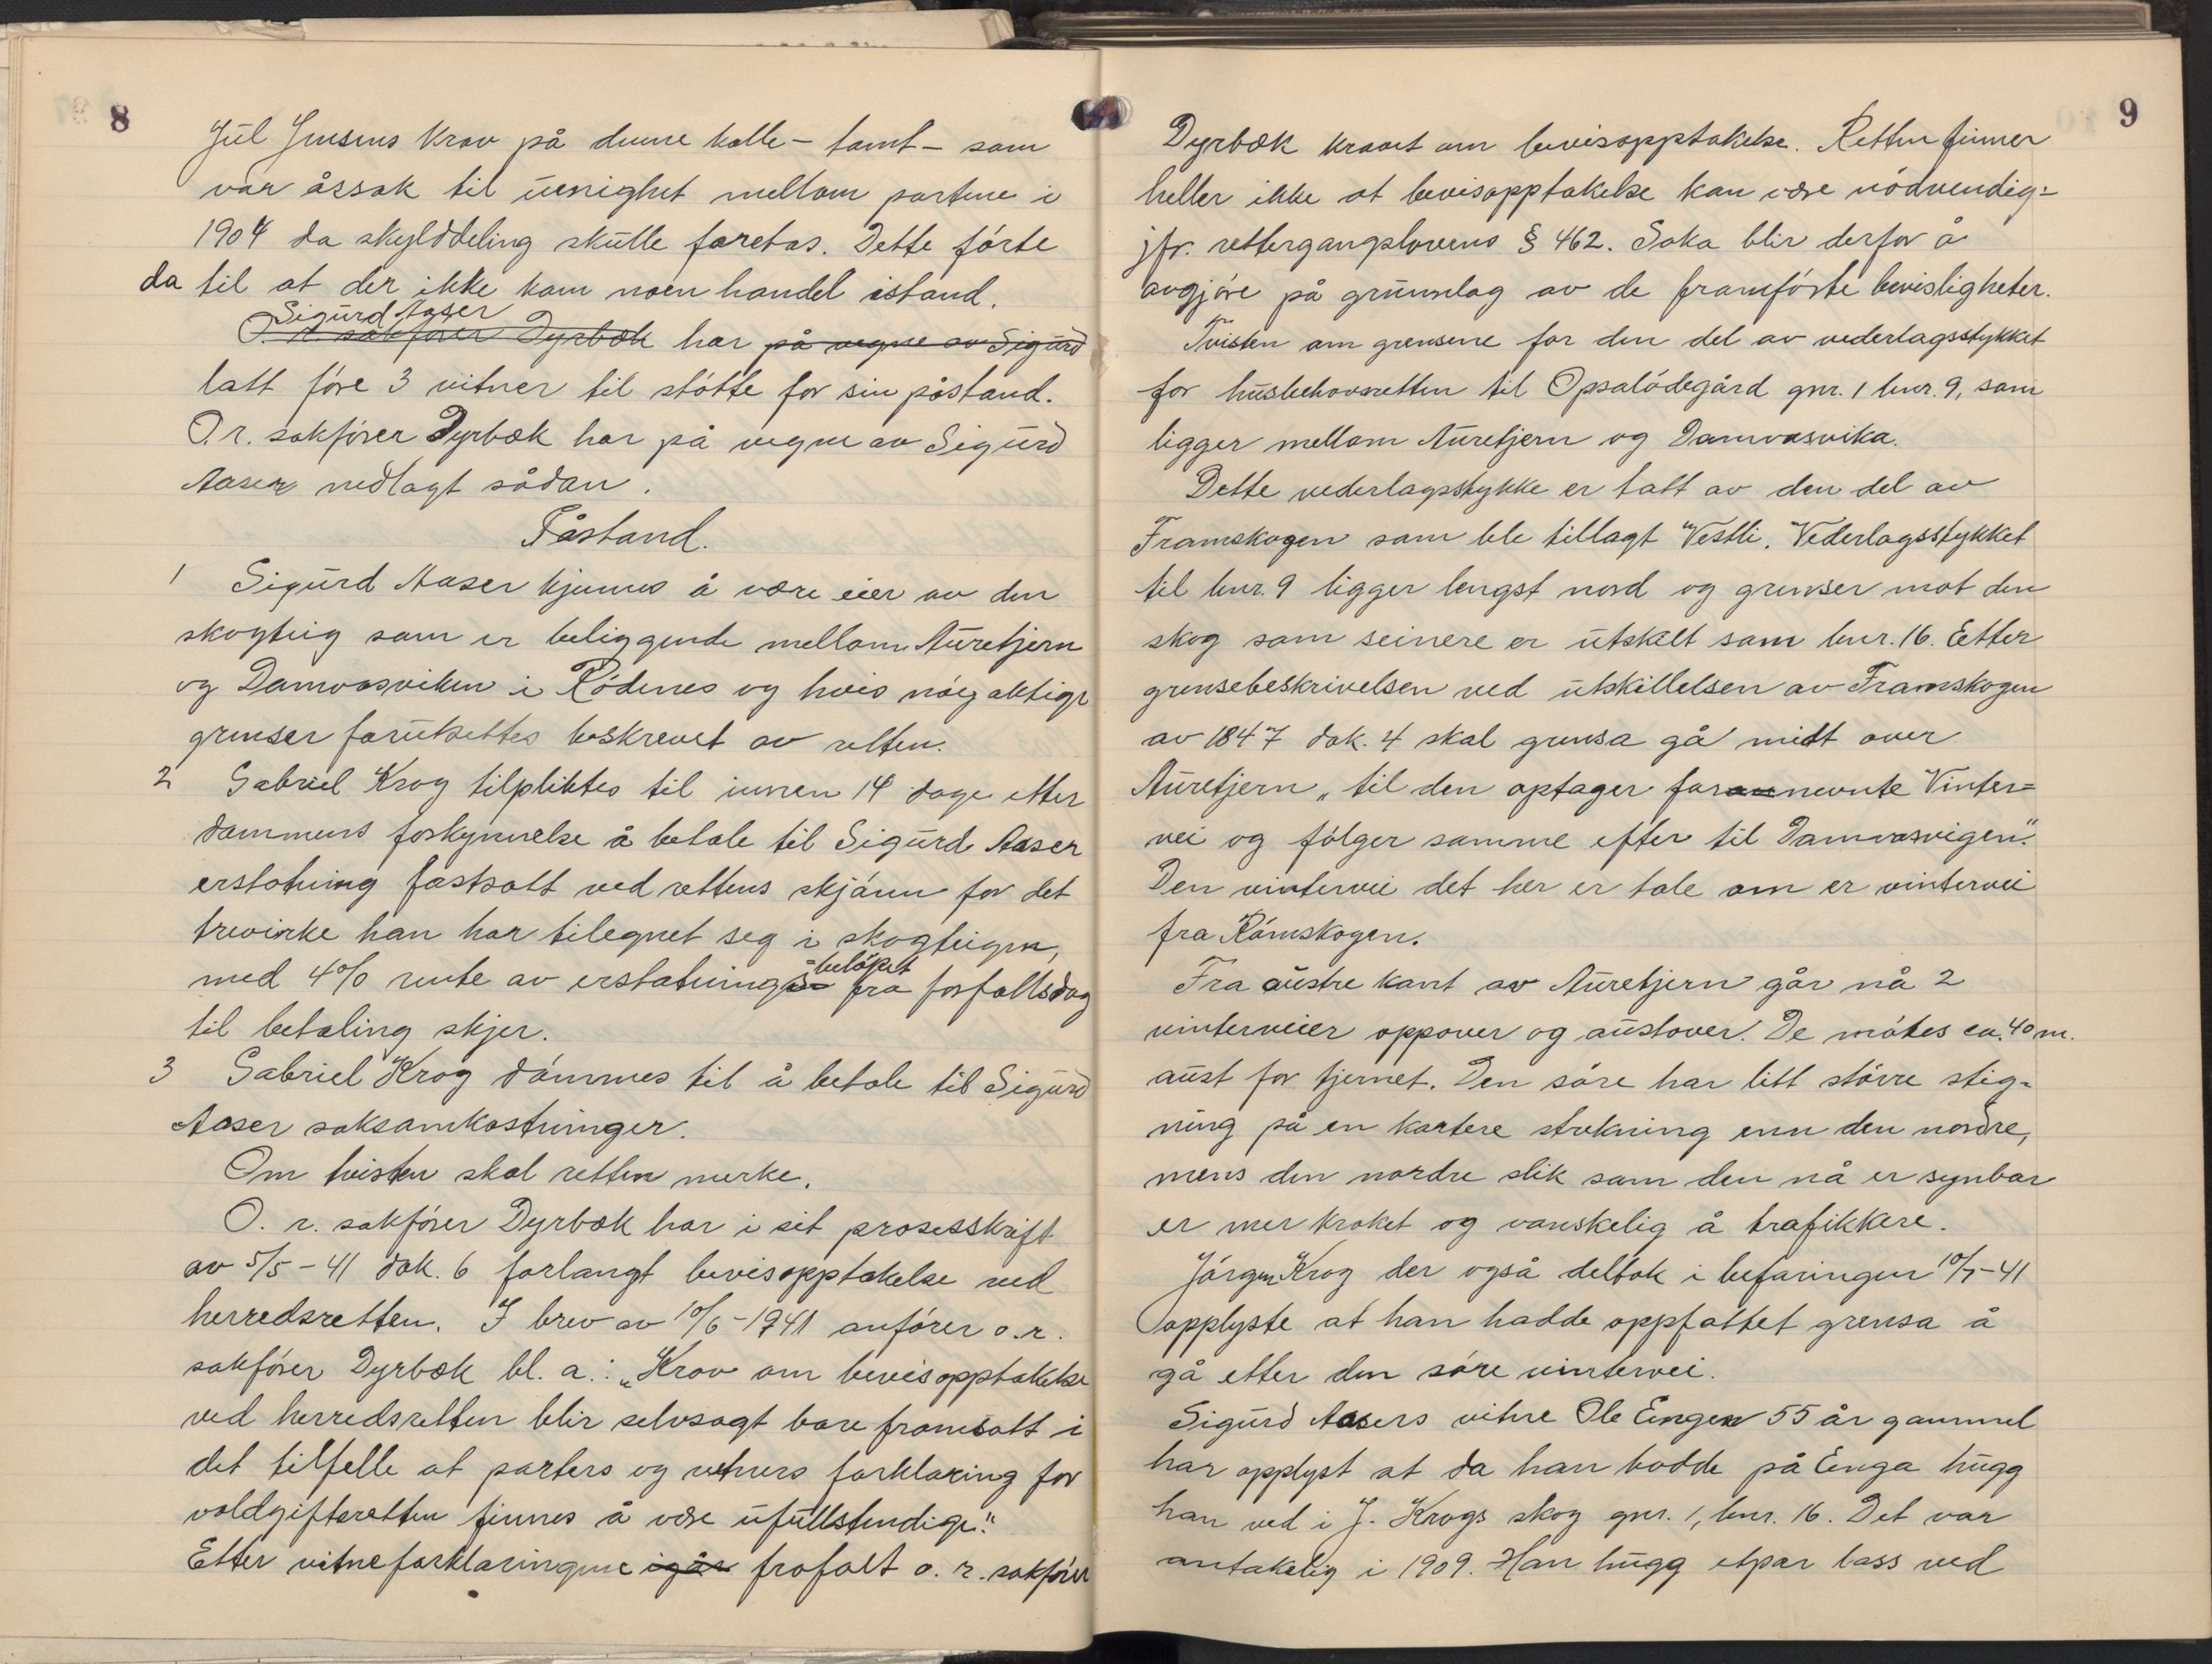 8
Jul Jensens krav på denne kolle - tomt - som
var åssak til uenighet mellom partene i
1904 da skylddeling skulle foretas. Dette førte
da til at der ikke kom noen handel istand.
Sigurd Aaser
O. r. sakfører Dyrbæk har på vegne av Sigurd
latt føre 3 vitner til støtte for sin påstand.
O.r. sakfører Dyrbæk har på vegne av Sigurd
Aaser nedlagt sådan.
Påstand.
1 Sigurd Aaser kjennes å være eier av den
skogteig som er beliggende mellom Auretjern
og Damvasviken i Rødenes og hvis nøyaktige
grenser forutsettes beskrevet av retten.
2 Gabriel Krog tilpliktes til innen 14 dage etter
dommens forkynnelse å betale til Sigurd Aaser
erstatning fastsatt ved rettens skjønn for det
trevirke han har tilegnet seg i skogteigen,
med 4% rente av erstatnings-beløpet fra forfallsdag
til betaling skjer.
3 Gabriel Krog dømmes til å betale til Sigurd
Aaser saksomkostninger.
Om tvisten skal retten merke.
O. r. sakfører Dyrbæk har i sit prosesskrift
av 5/5-41 dok. 6 forlangt bevisopptakelse ved
herredsretten. I brev av 10/6-1941 anfører o.r.
sakfører Dyrbæk bl. a.: „Krav om bevisopptakelse
ved herredsretten blir selvsagt bare framsatt i
det tilfelle at parters og vitners forklaring for
voldgiftsretten finnes å være ufullstendige."
Etter vitneforklaringene igår frafalt o. r. sakfører
9
Dyrbæk kravet om bevisopptakelse. Retten finner
heller ikke at bevisopptakelse kan være nødvendig=
jfr. rettergangslovens § 462. Saka blir derfor å
avgjøre på grunnlag av de framførte bevisligheter.
Tvisten om grensene for den del av vederlagsstykket
for husbehovsretten til Opsalødegård gnr. 1 bnr. 9, som
ligger mellom Auretjern og Damvasvika.
Dette vederlagsstykke er tatt av den del av
Framskogen som ble tillagt Vestli. Vederlagsstykket
til bnr. 9 ligger lengst nord og grenser mot den
skog som seinere er utskilt som bnr. 16. Etter
grensebeskrivelsen ved utskillelsen av Framskogen
av 1847 dok. 4 skal grensa gå midt over
Auretjern „til den optager forannevnte Vinter=
vei og følger samme efter til Damvasvigen."
Den vintervei det her er tale om er vintervei
fra Rømskogen.
Fra austre kant av Auretjern går nå 2
vinterveier oppover og austover. De møtes ca. 40 m.
aust for tjernet. Den søre har litt større stig=
ning på en kortere strekning enn den nordre,
mens den nordre slik som den nå er synbar
er mer kroket og vanskelig å trafikkere.
Jørgen Krog der også deltok i befaringen 10/7-41
opplyste at han hadde oppfattet grensa å
gå etter den søre vintervei.
Sigurd Aasers vitne Ole Engen 55 år gammel
har opplyst at da han bodde på Enga hugg
han ved i J. Krogs skog gnr. 1, bnr. 16. Det var
antakelig i 1909. Han hugg etpar lass ved